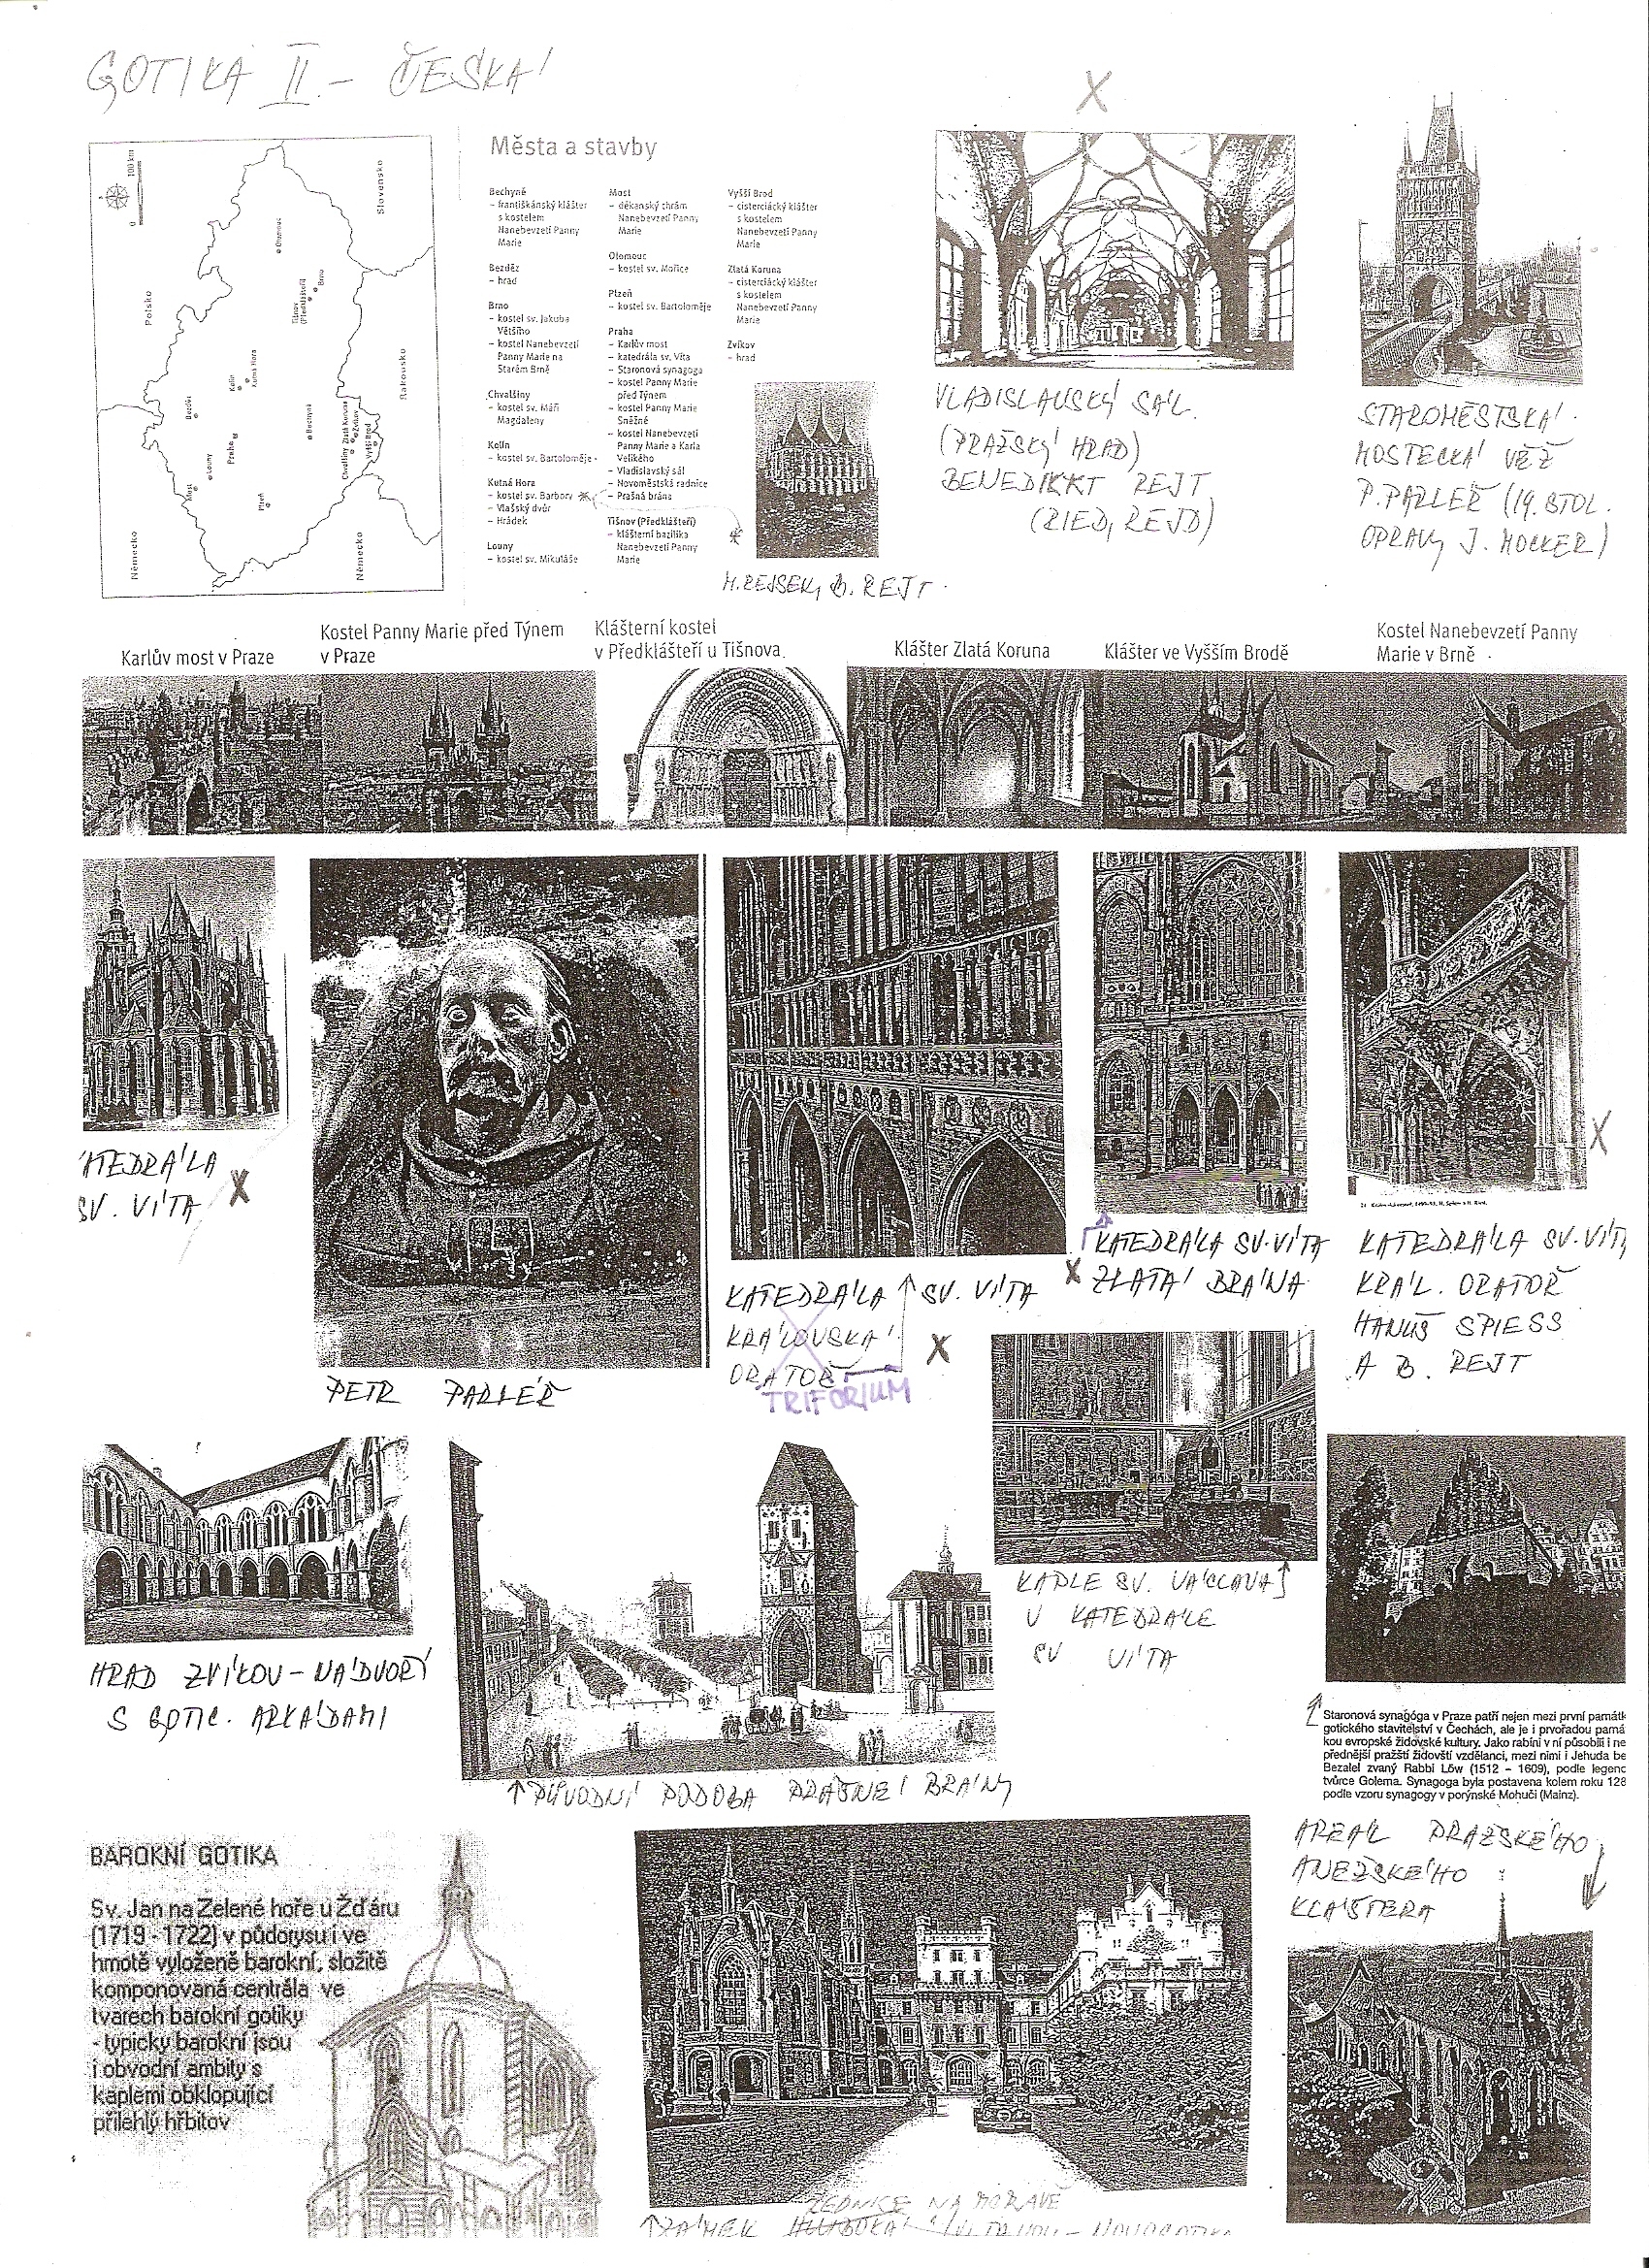 GOTIKA II. - ČESKÁ
X
100 km
0
Polsko
Slovensko
Německo
Německo
Rakousko
Olomouc
Brno
Tišnov
(Předklášteří)
Kolín
Kutná Hora
Bezděz
Praha
Louny
Most
Plzeň
Bechyně
Chvalšiny
Zlatá Koruna
Zvíkov
Vyšší Brod
Města a stavby
Bechyně
– františkánský klášter
s kostelem
Nanebevzetí Panny
Marie
Bezděz
– hrad
Brno
– kostel sv. Jakuba
Většího
– kostel Nanebevzetí
Panny Marie na
Starém Brně
Chvalšiny
– kostel sv. Máří
Magdaleny
Kolín
– kostel sv. Bartoloměje
Kutná Hora
– kostel sv. Barbory
– Vlašský dvůr
– Hrádek
Louny
– kostel sv. Mikuláše
Most
– děkanský chrám
Nanebevzetí Panny
Marie
Olomouc
– kostel sv. Mořice
Plzeň
– kostel sv. Bartoloměje
Praha
– Karlův most
– katedrála sv. Víta
– Staronová synagoga
– kostel Panny Marie
před Týnem
– kostel Panny Marie
Sněžné
– kostel Nanebevzetí
Panny Marie a Karla
Velikého
– Vladislavský sál
– Novoměstská radnice
– Prašná brána
Tišnov (Předklášteří)
– klášterní bazilika
Nanebevzetí Panny
Marie
Vyšší Brod
– cisterciácký klášter
s kostelem
Nanebevzetí Panny
Marie
Zlatá Koruna
– cisterciácký klášter
s kostelem
Nanebevzetí Panny
Marie
Zvíkov
– hrad
M. REJSEK, B. REJT.
VLADISLAVSKÝ SÁL.
(PRAŽSKÝ HRAD)
BENEDIKKT REJT
(RIED, REJD)
STAROMĚSTSKÁ
MOSTECKÁ VĚŽ
P. PARLÉŘ (19. STOL.
OPRAVY J. MOCKER)
Karlův most v Praze
Kostel Panny Marie před Týnem
v Praze
Klášterní kostel
v Předklášteří u Tišnova
Klášter Zlatá Koruna
Klášter ve Vyšším Brodě
Kostel Nanebevzetí Panny
Marie v Brně
ATEDRÁLA
SV. VÍTA X
PETR PARLÉŘ
KATEDRÁLA SV. VÍTA
KRÁLOVSKÁ
ORATOŘ
X
TRIFORIUM
KATEDRÁLA SV. VÍTA
X ZLATÁ BRÁNA
X
KATEDRÁLA SV. VÍT
KRÁL. ORATOŘ
HANUŠ SPIESS
A B. REJT
HRAD ZVÍKOV – NÁDVOŘÍ
S GOTIC. ARKÁDAMI
PŮVODNÍ PODOBA PRAŠNÉ BRÁNY
KAPLE SV. VÁCLAVA
V KATEDRÁLE
SV VÍTA
Staronová synagóga v Praze patří nejen mezi první památk
gotického stavitelství v Čechách, ale je i prvořadou pamá
kou evropské židovské kultury. Jako rabíni v ní působili i ne
přednější pražští židovští vzdělanci, mezi nimi i Jehuda be
Bezalel zvaný Rabbi Löw (1512 – 1609), podle legend
tvůrce Golema. Synagoga byla postavena kolem roku 128
podle vzoru synagogy v porýnské Mohuči (Mainz).
AREÁL PRAŽSKÉHO
ANEŽSKÉHO
KLÁŠTERA
BAROKNÍ GOTIKA
Sv. Jan na Zelené hoře u Žďáru
(1719 - 1722) v půdorysu i ve
hmotě vyloženě barokní, složitě
komponovaná centrála ve
tvarech barokní gotiky
- typicky barokní jsou
i obvodní ambity s
kaplemi obklopující
přilehlý hřbitov
LEDNICE NA MORAVĚ
ZÁMEK HLUBOKÁ